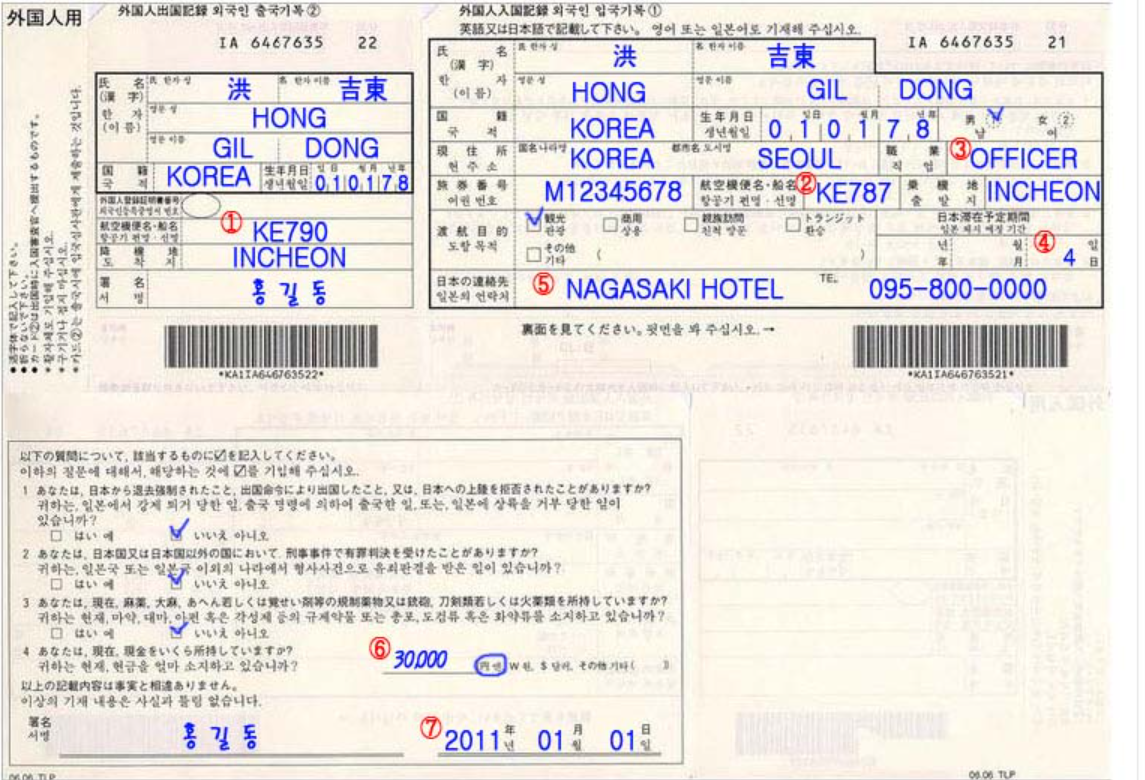 外国人用
外国人出国記録 외국인 출국기록 ②
IA 6467635 22
氏 名 (漢 字)
한 자 (이 름)
氏 한자 성 洪 名 한자 이름 吉東
영문 성 HONG
영문 이름 GIL DONG
国 籍 국 적 KOREA 生年月日 생년월일 日일 月월 年년 010178
外国人登録証明書番号
외국인등록증명서 번호
航空機便名・船名 항공기 편명・선명 ① KE790
降 機 地 도 착 지 INCHEON
署 名 서 명 홍 길 동
*KA1IA646763522*
●活字体で記入して下さい。
●折らないで下さい。
●カード②は出国時に入国審査官へ提出するものです。
*활자체로 기입해 주십시오.
*구기거나 접지 마십시오.
*카드②는 출국시에 입국심사관에게 제출하는 것입니다.
外国人入国記録 외국인 입국기록 ①
英語又は日本語で記載して下さい。 영어 또는 일본어로 기재해 주십시오.
IA 6467635 21
氏 名 (漢 字)
한 자 (이 름)
氏 한자 성 洪 名 한자 이름 吉東
영문 성 HONG 영문 이름 GIL DONG
国 籍 국 적 KOREA 生年月日 생년월일 日일 月월 年년 010178 男 남 ① 女 여 ②
現 住 所 현 주 소 国名나라명 KOREA 都市名 도시명 SEOUL 職 業 직 업 ③ OFFICER
旅 券 番 号 여권 번호 M12345678 航空機便名・船名 항공기 편명・선명 ② KE787 乗 機 地 출 발 지 INCHEON
渡 航 目 的 도항 목적 観光 관광 商用 상용 親族訪問 친척 방문 トランジット 환승 日本滞在予定期間 일본 체재 예정 기간
その他 기타 ( ) 년 年 월 月 ④ 4 일 日
日本の連絡先 일본의 연락처 ⑤ NAGASAKI HOTEL TEL 095-800-0000
裏面を見てください。 뒷면을 봐 주십시오. →
*KA1IA646763521*
以下の質問について、該当するものに☑を記入してください。
이하의 질문에 대해서, 해당하는 것에 ☑를 기입해 주십시오.
1 あなたは、日本から退去強制されたこと、出国命令により出国したこと、又は、日本への上陸を拒否されたことがありますか?
귀하는, 일본에서 강제 퇴거 당한 일, 출국 명령에 의하여 출국한 일, 또는, 일본에 상륙을 거부 당한 일이
있습니까?
□ はい 예 ☑ いいえ 아니오
2 あなたは、日本国又は日本国以外の国において、刑事事件で有罪判決を受けたことがありますか?
귀하는, 일본국 또는 일본국 이외의 나라에서 형사사건으로 유죄판결을 받은 일이 있습니까?
□ はい 예 ☑ いいえ 아니오
3 あなたは、現在、麻薬、大麻、あへん若しくは覚せい剤等の規制薬物又は銃砲、刀剣類若しくは火薬類を所持していますか?
귀하는 현재, 마약, 대마, 아편 혹은 각성제 등의 규제약물 또는 총포, 도검류 혹은 화약류를 소지하고 있습니까?
□ はい 예 ☑ いいえ 아니오
4 あなたは、現在、現金をいくら所持していますか?
귀하는 현재, 현금을 얼마 소지하고 있습니까? ⑥ 30,000 円엔 W원, $달러, その他 기타( )
以上の記載内容は事実と相違ありません。
이상의 기재 내용은 사실과 틀림 없습니다.
署名 서명 홍 길 동 ⑦ 2011 年 년 01 月 월 01 日 일
06.06 TLP
06.06 TLP